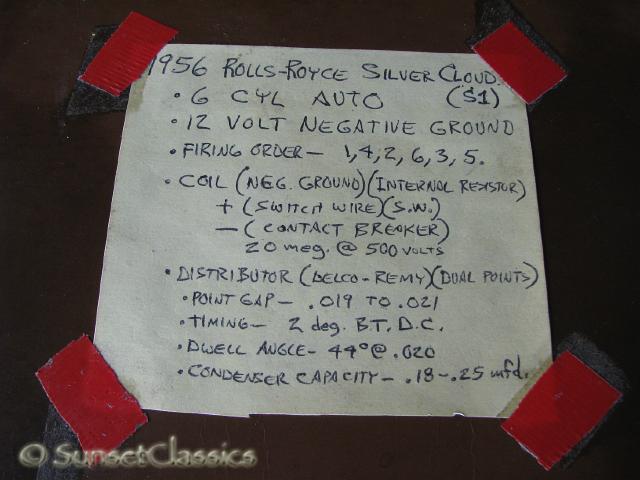 1956 ROLLS-ROYCE SILVER CLOUD
• 6 CYL AUTO (S1)
• 12 VOLT NEGATIVE GROUND
• FIRING ORDER — 1,4,2,6,3,5.
• COIL (NEG. GROUND)(INTERNAL RESISTOR)
+ (SWITCH WIRE)(S.W.)
— (CONTACT BREAKER)
20 meg. @ 500 VOLTS
• DISTRIBUTOR (DELCO-REMY)(DUAL POINTS)
• POINT GAP — .019 TO .021
• TIMING — 2 deg. B.T.D.C.
• DWELL ANGLE - 44° @ .020
• CONDENSER CAPACITY — .18 - .25 mfd.
© SunsetClassics